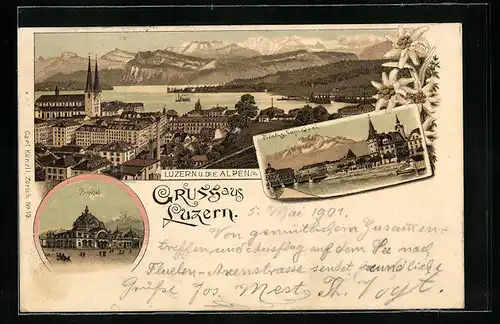 LUZERN U. DIE ALPEN.
Pilatus vom Quai.
Bahnhof
GRUSS aus
Luzern.
Carl Künzli, Zürich No
5. Mai 1901.
Von gemütlichem Zusammen-
treffen und Ausflug auf dem See nach
Fluelen-Axenstrasse sendet freundliche
Grüße Jos. Th. Vogt.